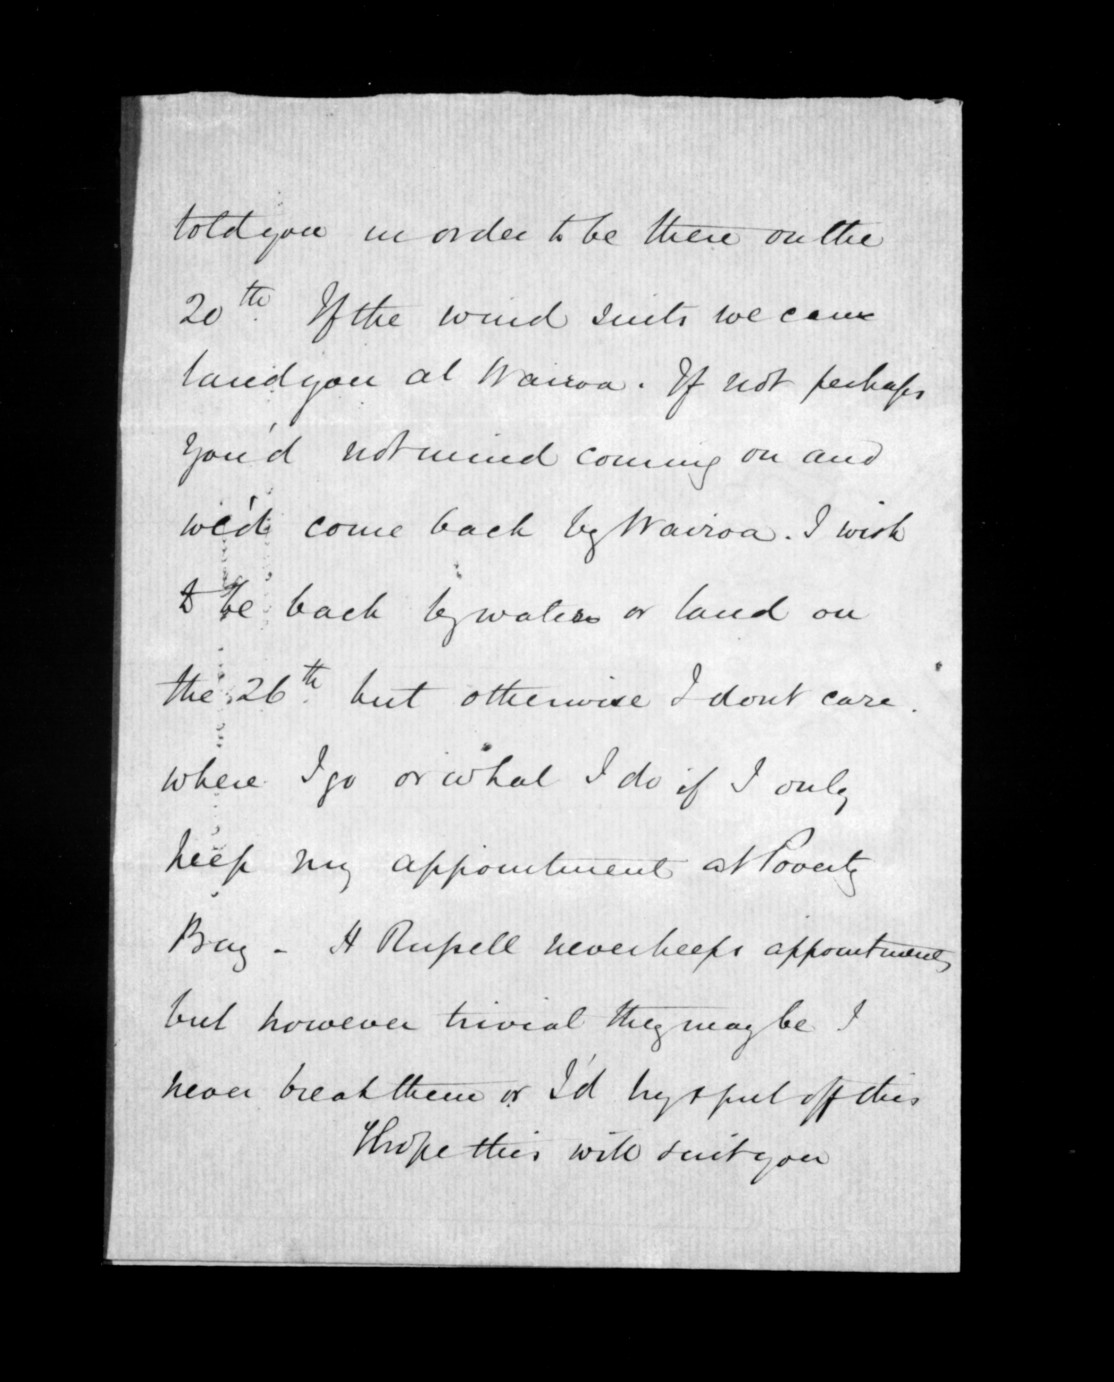 told you in order to be there on the
20th. If the wind suits we can
land you at Wairoa. If not perhaps
you'd not mind coming on and
we'd come back by Wairoa. I wish
to be back by water or land on
the 26th. but otherwise I dont care.
where I go or what I do if I only
keep my appointment at Poverty
Bay - H Russell never keeps appointments
but however trivial they may be I
never break them or I'd try & put off this
I hope this will suit you